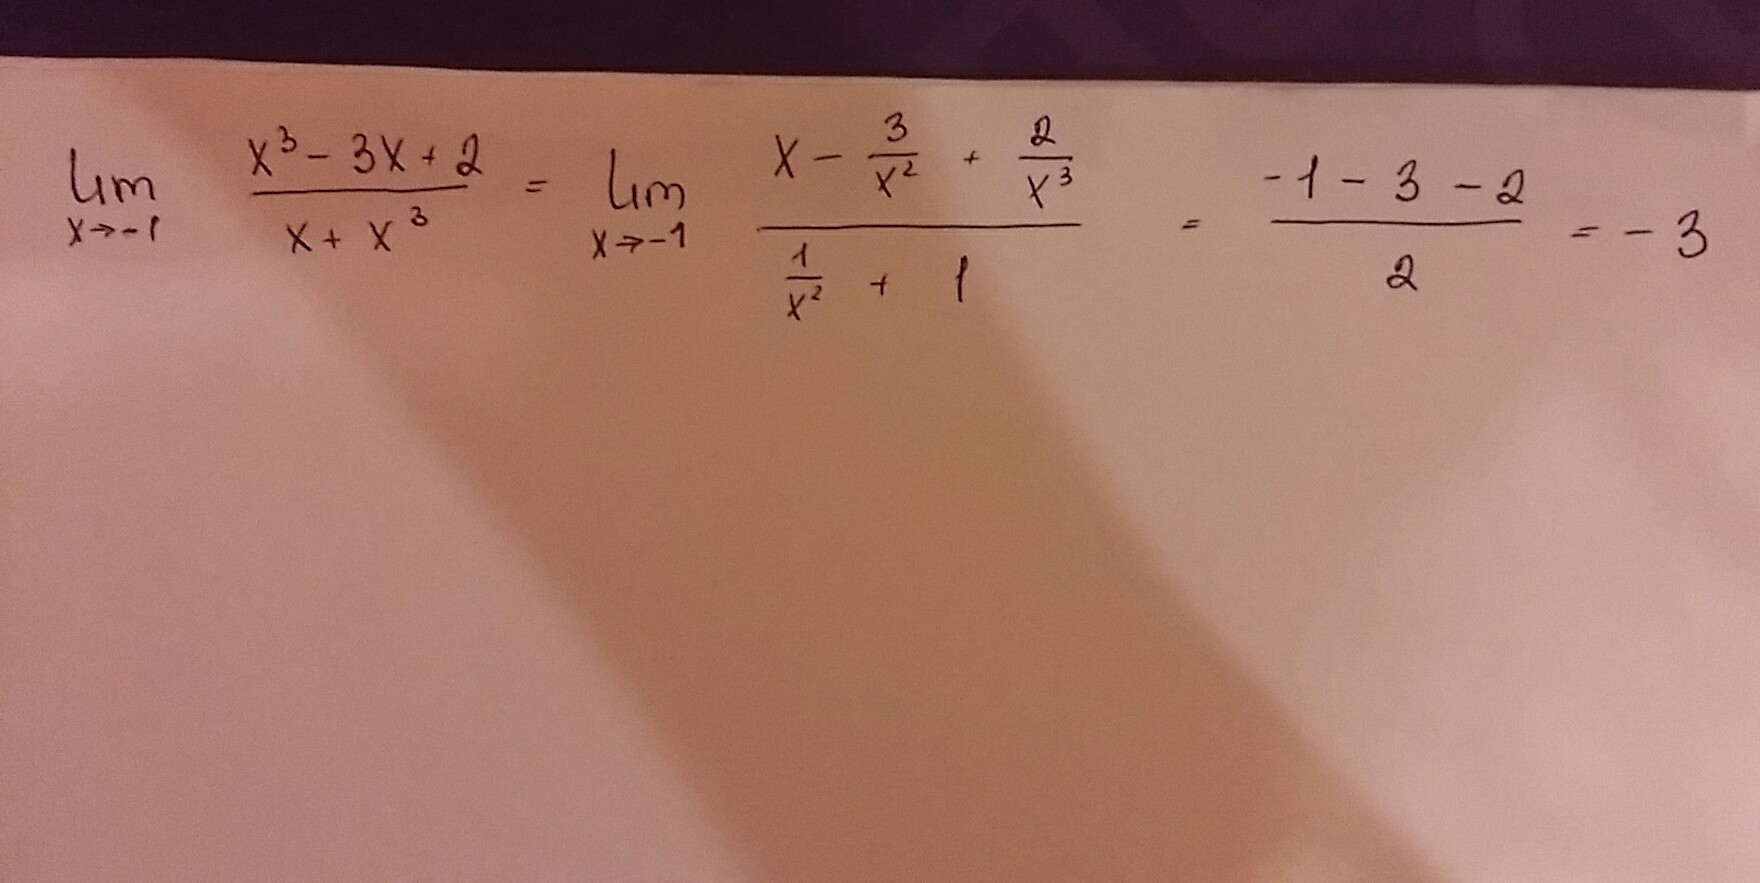 lim x→-1 (x³ - 3x + 2)/(x + x³) = lim x→-1 (x - 3/x² + 2/x³)/(1/x² + 1) = (-1 - 3 - 2)/2 = -3